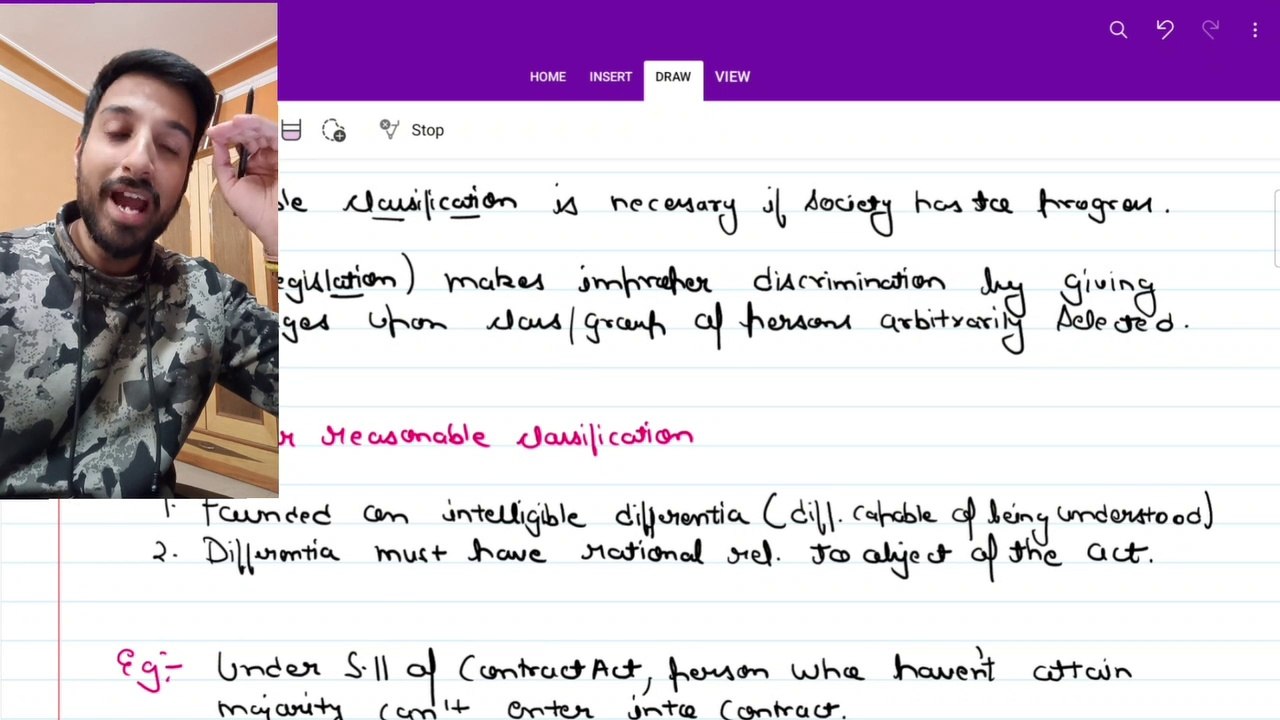 HOME INSERT DRAW VIEW
Stop
le classification is necessary if society has to progress.
egislation) makes improper discrimination by giving
ges upon class/group of persons arbitrarily selected.
r reasonable classification
1. Founded on intelligible differentia (diff. capable of being understood)
2. Differentia must have rational rel. to object of the act.
Eg:- Under S.11 of Contract Act, person who haven't attain
majority can't enter into contract.